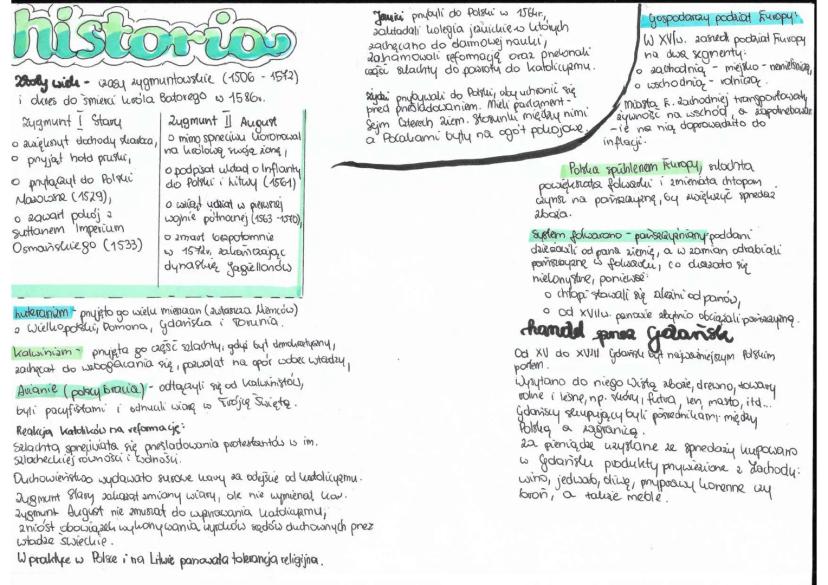 historia
Złoty wiek - czasy zygmuntowskie (1506 - 1572)
i okres do śmierci króla Batorego w 1586r.
Zygmunt I Stary
o zwiększył dochody skarbu,
o przyjął hołd pruski,
o przyłączył do Polski
Mazowsze (1529),
o zawarł pokój z
sułtanem Imperium
Osmańskiego (1533)
Zygmunt II August
o mimo sprzeciwu koronował
na królową swoją żonę,
o podpisał układ o Inflanty
do Polski i Litwy (1561)
o wziął udział w pierwszej
wojnie północnej (1563 - 1570),
o zmarł bezpotomnie
w 1572r. zakańczając
dynastię Jagiellonów
Luteranizm - przyjęło go wielu mieszczan (zwłaszcza Niemców)
o Wielkopolski, Pomorza, Gdańska i Torunia.
Kalwinizm - przyjęła go część szlachty, gdyż był demokratyczny,
zachęcał do wzbogacania się, pozwalał na opór wobec władzy,
Arianie (polscy bracia) - odłączyli się od kalwinistów,
byli pacyfistami i odrzucali wiarę w Trójcę Świętą.
Reakcja katolików na reformację:
Szlachta sprzeciwiała się prześladowaniu protestantów w im.
szlacheckiej równości i wolności.
Duchowieństwo wydawało surowe kary za odejście od katolicyzmu.
Zygmunt Stary zakazał zmiany wiary, ale nie wymierzał kar.
Zygmunt August nie zmuszał do wyznawania katolicyzmu,
zniósł obowiązek wykonywania wyroków sądów duchownych przez
władze świeckie.
W praktyce w Polsce i na Litwie panowała tolerancja religijna.
Jezuici przybyli do Polski w 1564r.,
zakładali kolegia jezuickie w których
zachęcano do darmowej nauki,
zahamowali reformację oraz przekonali
część szlachty do powrotu do katolicyzmu.
Żydzi przybywali do Polski, aby uchronić się
przed prześladowaniem. Mieli parlament -
Sejm Czterech Ziem. Stosunki między nimi
a Polakami były na ogół pokojowe.
Gospodarczy podział Europy:
W XVIw. zaszedł podział Europy
na dwa segmenty:
o zachodnią - miejsko - rzemieślniczą,
o wschodnią - rolniczą.
Miasta E. Zachodniej transportowały
żywność na wschód, a zapotrzebowa-
-nie na nią doprowadziło do
inflacji.
Polska spichlerzem Europy, szlachta
powiększała folwarki i zmieniała chłopom
czynsz na pańszczyznę, by zwiększyć sprzedaż
zboża.
System folwarczno - pańszczyźniany: poddani
dzierżawili od pana ziemię, a w zamian odrabiali
pańszczyznę w folwarku, co okazało się
niekorzystne, ponieważ:
o chłopi stawali się zależni od panów,
o od XVIIw. panowie zbytnio obciążali pańszczyzną.
handel przez Gdańsk
Od XV do XVIII Gdańsk był najważniejszym polskim
portem.
Wysyłano do niego Wisłą zboże, drewno, towary
rolne i leśne, np. skóry, futra, len, masło, itd...
Gdańscy skupujący byli pośrednikami między
Polską a zagranicą.
Za pieniądze uzyskane ze sprzedaży kupowano
w Gdańsku produkty przywiezione z Zachodu:
wino, jedwab, oliwę, przyprawy korzenne czy
broń, a także meble.